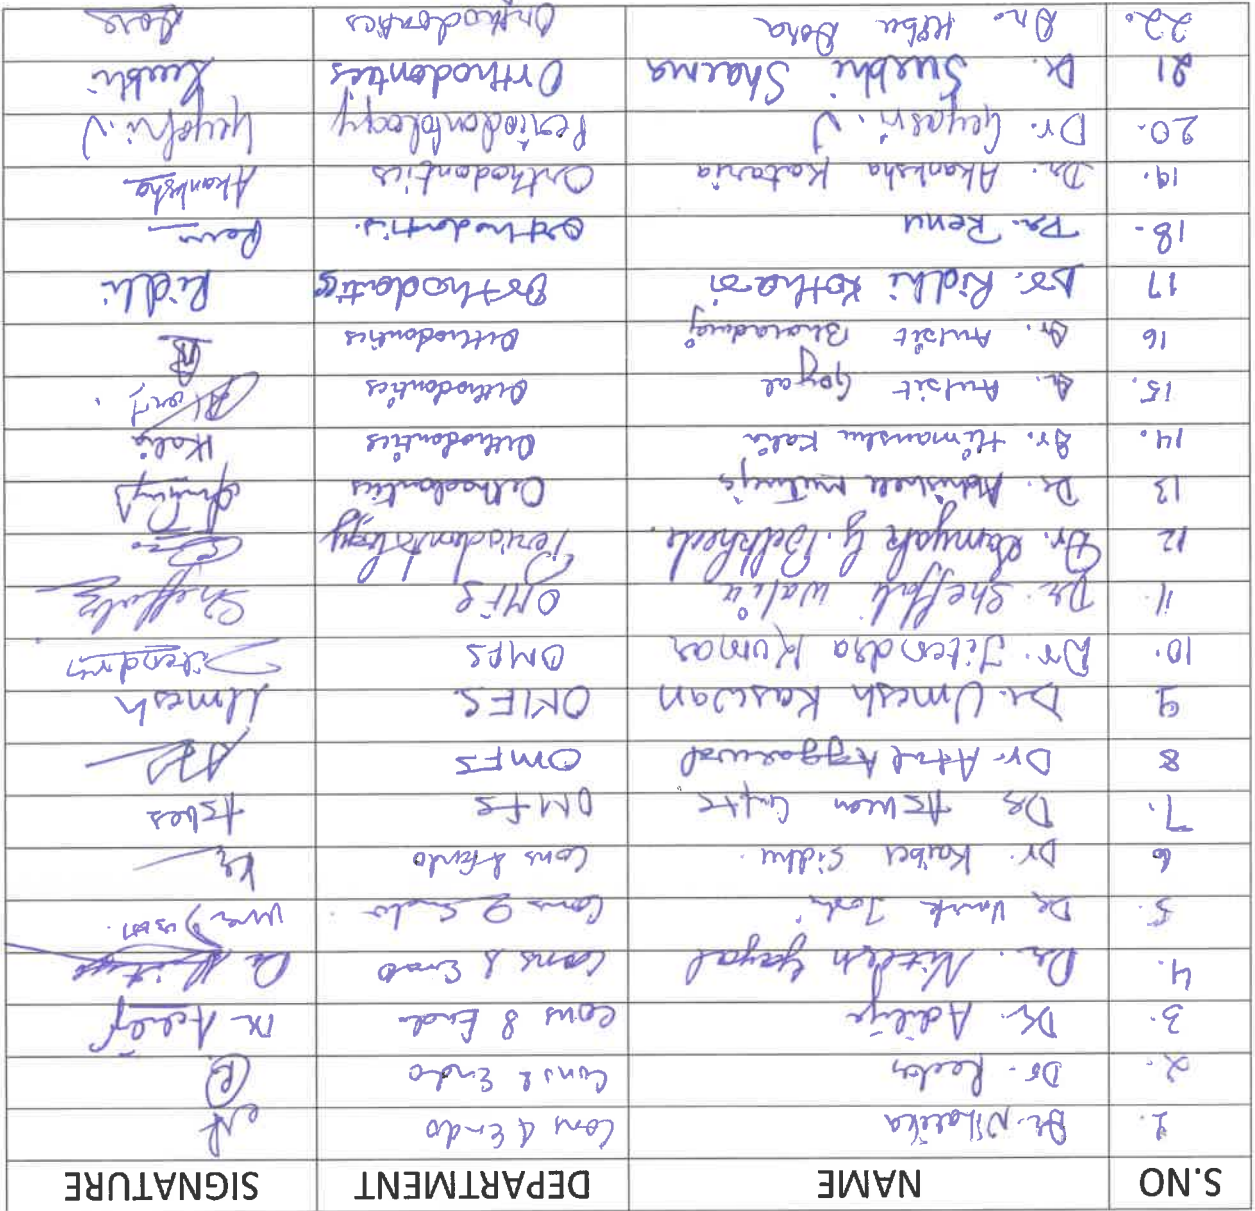 S.NO NAME DEPARTMENT SIGNATURE
1. Dr. Niharika Cons & Endo
2. Dr. Cons & Endo
3. Dr. Aditya Cons & Endo
4. Dr. Nitesh Goyal Cons & Endo
5. Dr. Joshi Cons & Endo
6 Dr. Kaiber Sidhu. Cons & Endo
7. Dr OMFS
8 Dr. Atul Aggarwal OMFS
9 Dr. Umesh Kaswan OMFS Umesh
10. Dr. Jitendra Kumar OMFS Jitendra
11. Dr. Sheffali Walia OMFS Sheffali
12 Dr. G. Periodontology
13 Dr. Orthodontics
14. Dr. Himanshu Kalia Orthodontics Kalia
15. Dr. Goyal Orthodontics
16 Dr. Bharadwaj Orthodontics
17 Dr. Ridhi Kothari Orthodontics Ridhi
18. Dr. Renu Orthodontics. Renu
19. Dr. Akanksha Kataria Orthodontics Akanksha
20. Dr. V Periodontology
21 Dr. Surbhi Sharma Orthodontics Surbhi
22. Dr. Dora Orthodontics Dora